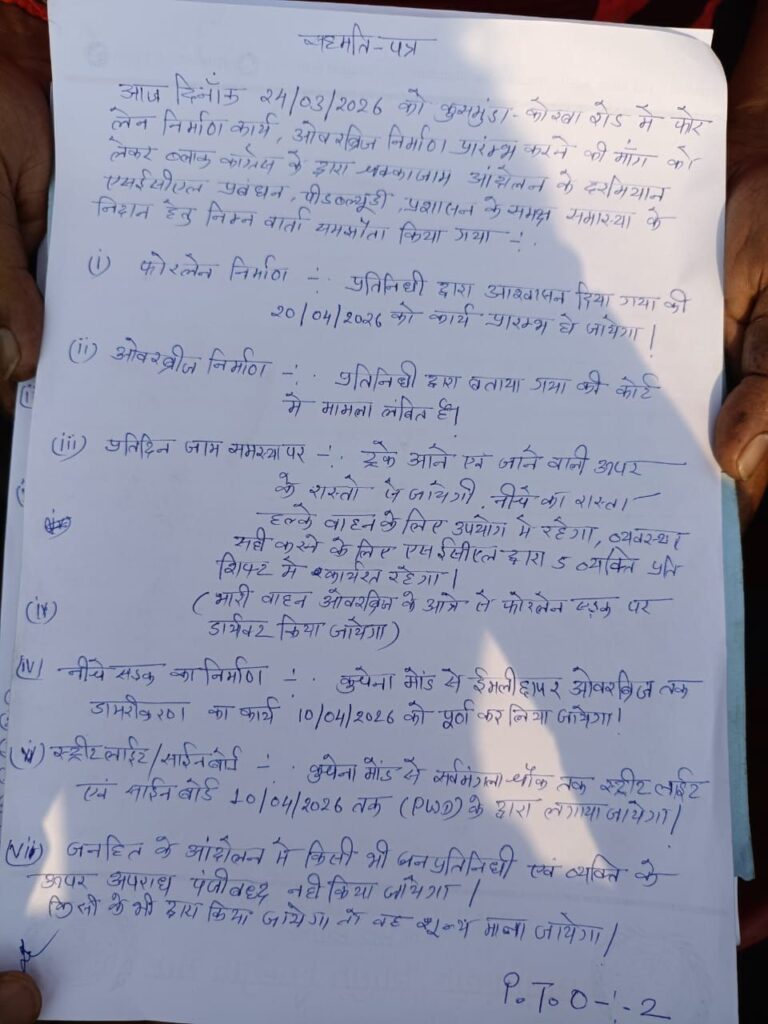 सहमति-पत्र
आज दिनाँक 24/03/2026 को कुसमुंडा-कोरबा रोड मे फोर
लेन निर्माण कार्य, ओवरब्रिज निर्माण प्रारंम्भ करने की माँग को
लेकर ब्लाक कांग्रेस के द्वारा चक्काजाम आंदोलन के दरमियान
एसईसीएल प्रबंधन, पीडब्ल्यूडी, प्रशासन के समक्ष समास्या के
निदान हेतु निम्न वार्ता समझौता किया गया -:.
(i) फोरलेन निर्माण -:. प्रतिनिधी द्वारा आश्वासन दिया गया की
20/04/2026 को कार्य प्रारम्भ हो जायेगा।
(ii) ओवरब्रीज निर्माण -:. प्रतिनिधी द्वारा बताया गया की कोर्ट
मे मामला लंबित है।
(iii) प्रतिदिन जाम समस्या पर -:. ट्रके आने एवं जाने वाली ऊपर
के रास्तो से जायेगी, नीचे का रास्ता
हल्के वाहन के लिए उपयोग मे रहेगा, व्यवस्था
सही करने के लिए एसईसीएल द्वारा 5 व्यक्ति प्रति
शिफ्ट मे कार्यरत रहेगा।
(iv) (भारी वाहन ओवरब्रिज के आगे से फोरलेन सड़क पर
डायवर्ट किया जायेगा)
(iv) नीचे सड़क का निर्माण -:. कुचेना मोंड से ईमलीछापर ओवरब्रिज तक
डामरीकरण का कार्य 10/04/2026 को पूर्ण कर लिया जायेगा।
स्ट्रीट लाईट/साईन बोर्ड -:. कुचेना मोंड से सर्वमंगला चौक तक स्ट्रीट लाईट
एवं साईन बोर्ड 10/04/2026 तक (PWD) के द्वारा लगाया जायेगा।
(vii) जनहित के आंदोलन मे किसी भी जनप्रतिनिधी एवं व्यक्ति के
ऊपर अपराध पंजीबध्द नही किया जायेगा।
किसी के भी द्वारा किया जायेगा तो वह शून्य माना जायेगा।
P.T.O-:-2